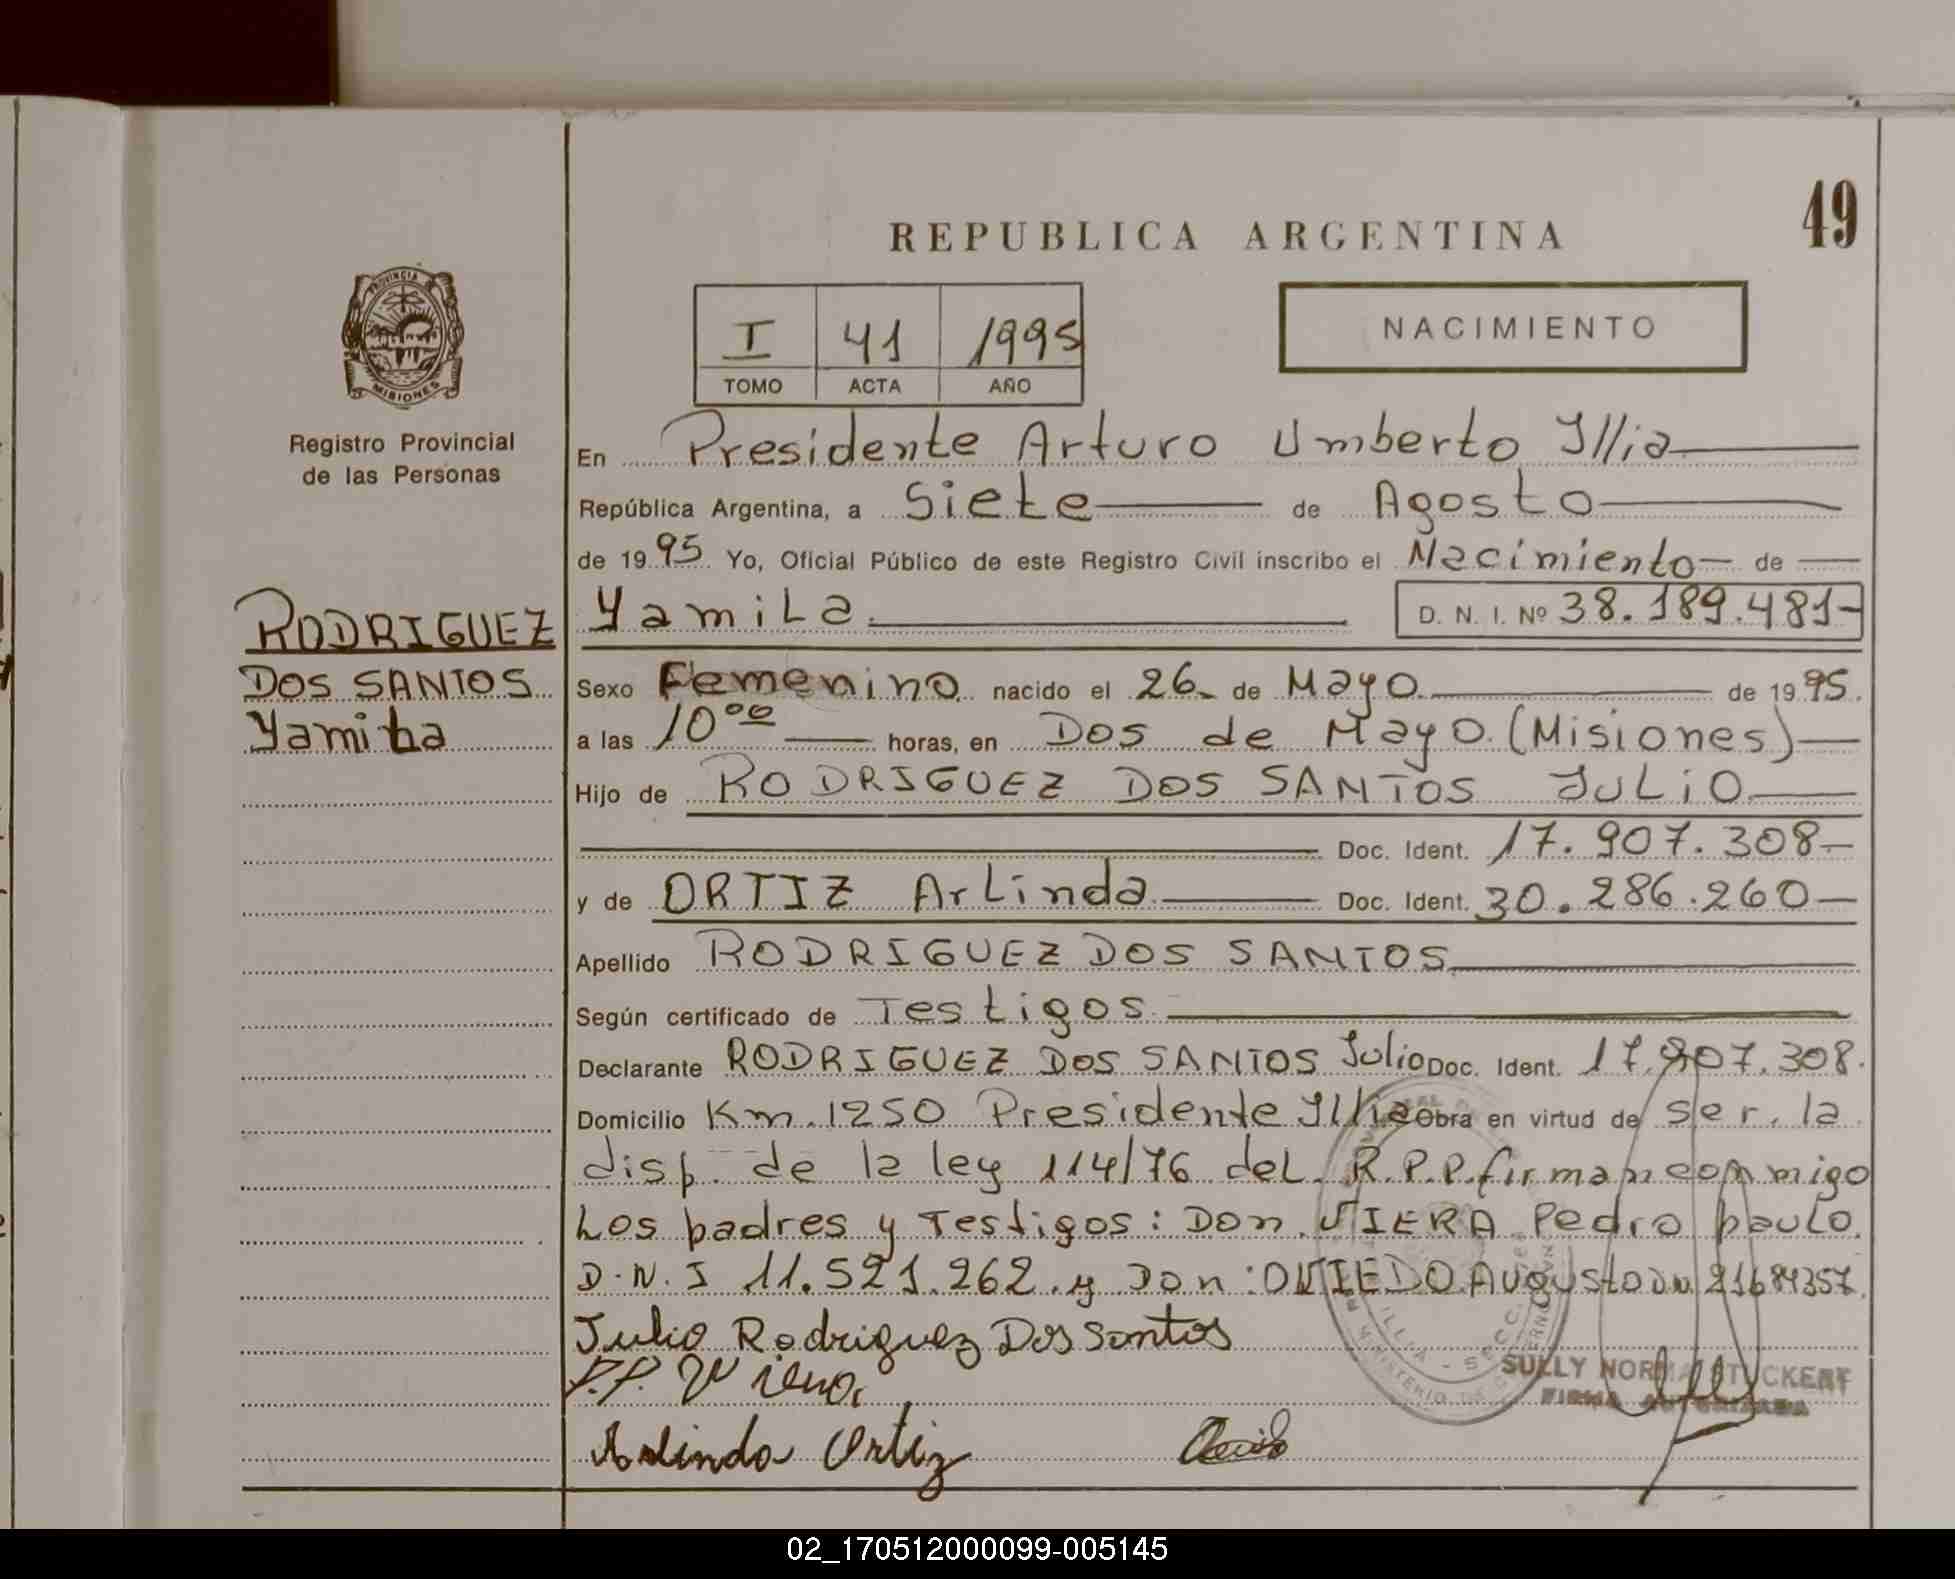 49
REPUBLICA ARGENTINA
PROVINCIA
MISIONES
Registro Provincial
de las Personas
I 41 1995
TOMO ACTA AÑO
NACIMIENTO
En Presidente Arturo Umberto Illia
República Argentina, a Siete de Agosto
de 1995 Yo, Oficial Público de este Registro Civil inscribo el Nacimiento de
RODRIGUEZ
DOS SANTOS
Yamila
Yamila D. N. I. Nº 38.189.481-
Sexo Femenino nacido el 26 de Mayo de 1995.
a las 10 00 horas, en Dos de Mayo (Misiones)
Hijo de RODRIGUEZ DOS SANTOS JULIO
Doc. Ident. 17.907.308-
y de ORTIZ Arlinda Doc. Ident. 30.286.260-
Apellido RODRIGUEZ DOS SANTOS
Según certificado de Testigos
Declarante RODRIGUEZ DOS SANTOS Julio Doc. Ident. 17.907.308.
Domicilio Km. 1250 Presidente Illia Obra en virtud de ser. la
disp. de la ley 114/76 del R.P.P. firman conmigo
Los padres y Testigos: Don VIERA Pedro paulo.
D.N.I 11.521.262. y Don: OVIEDO Augusto DN 21684357.
Julio Rodriguez Dos Santos
P.P. Viera
SULLY NORMA STUCKERT
FIRMA AUTORIZADA
Arlinda Ortiz
02_170512000099-005145